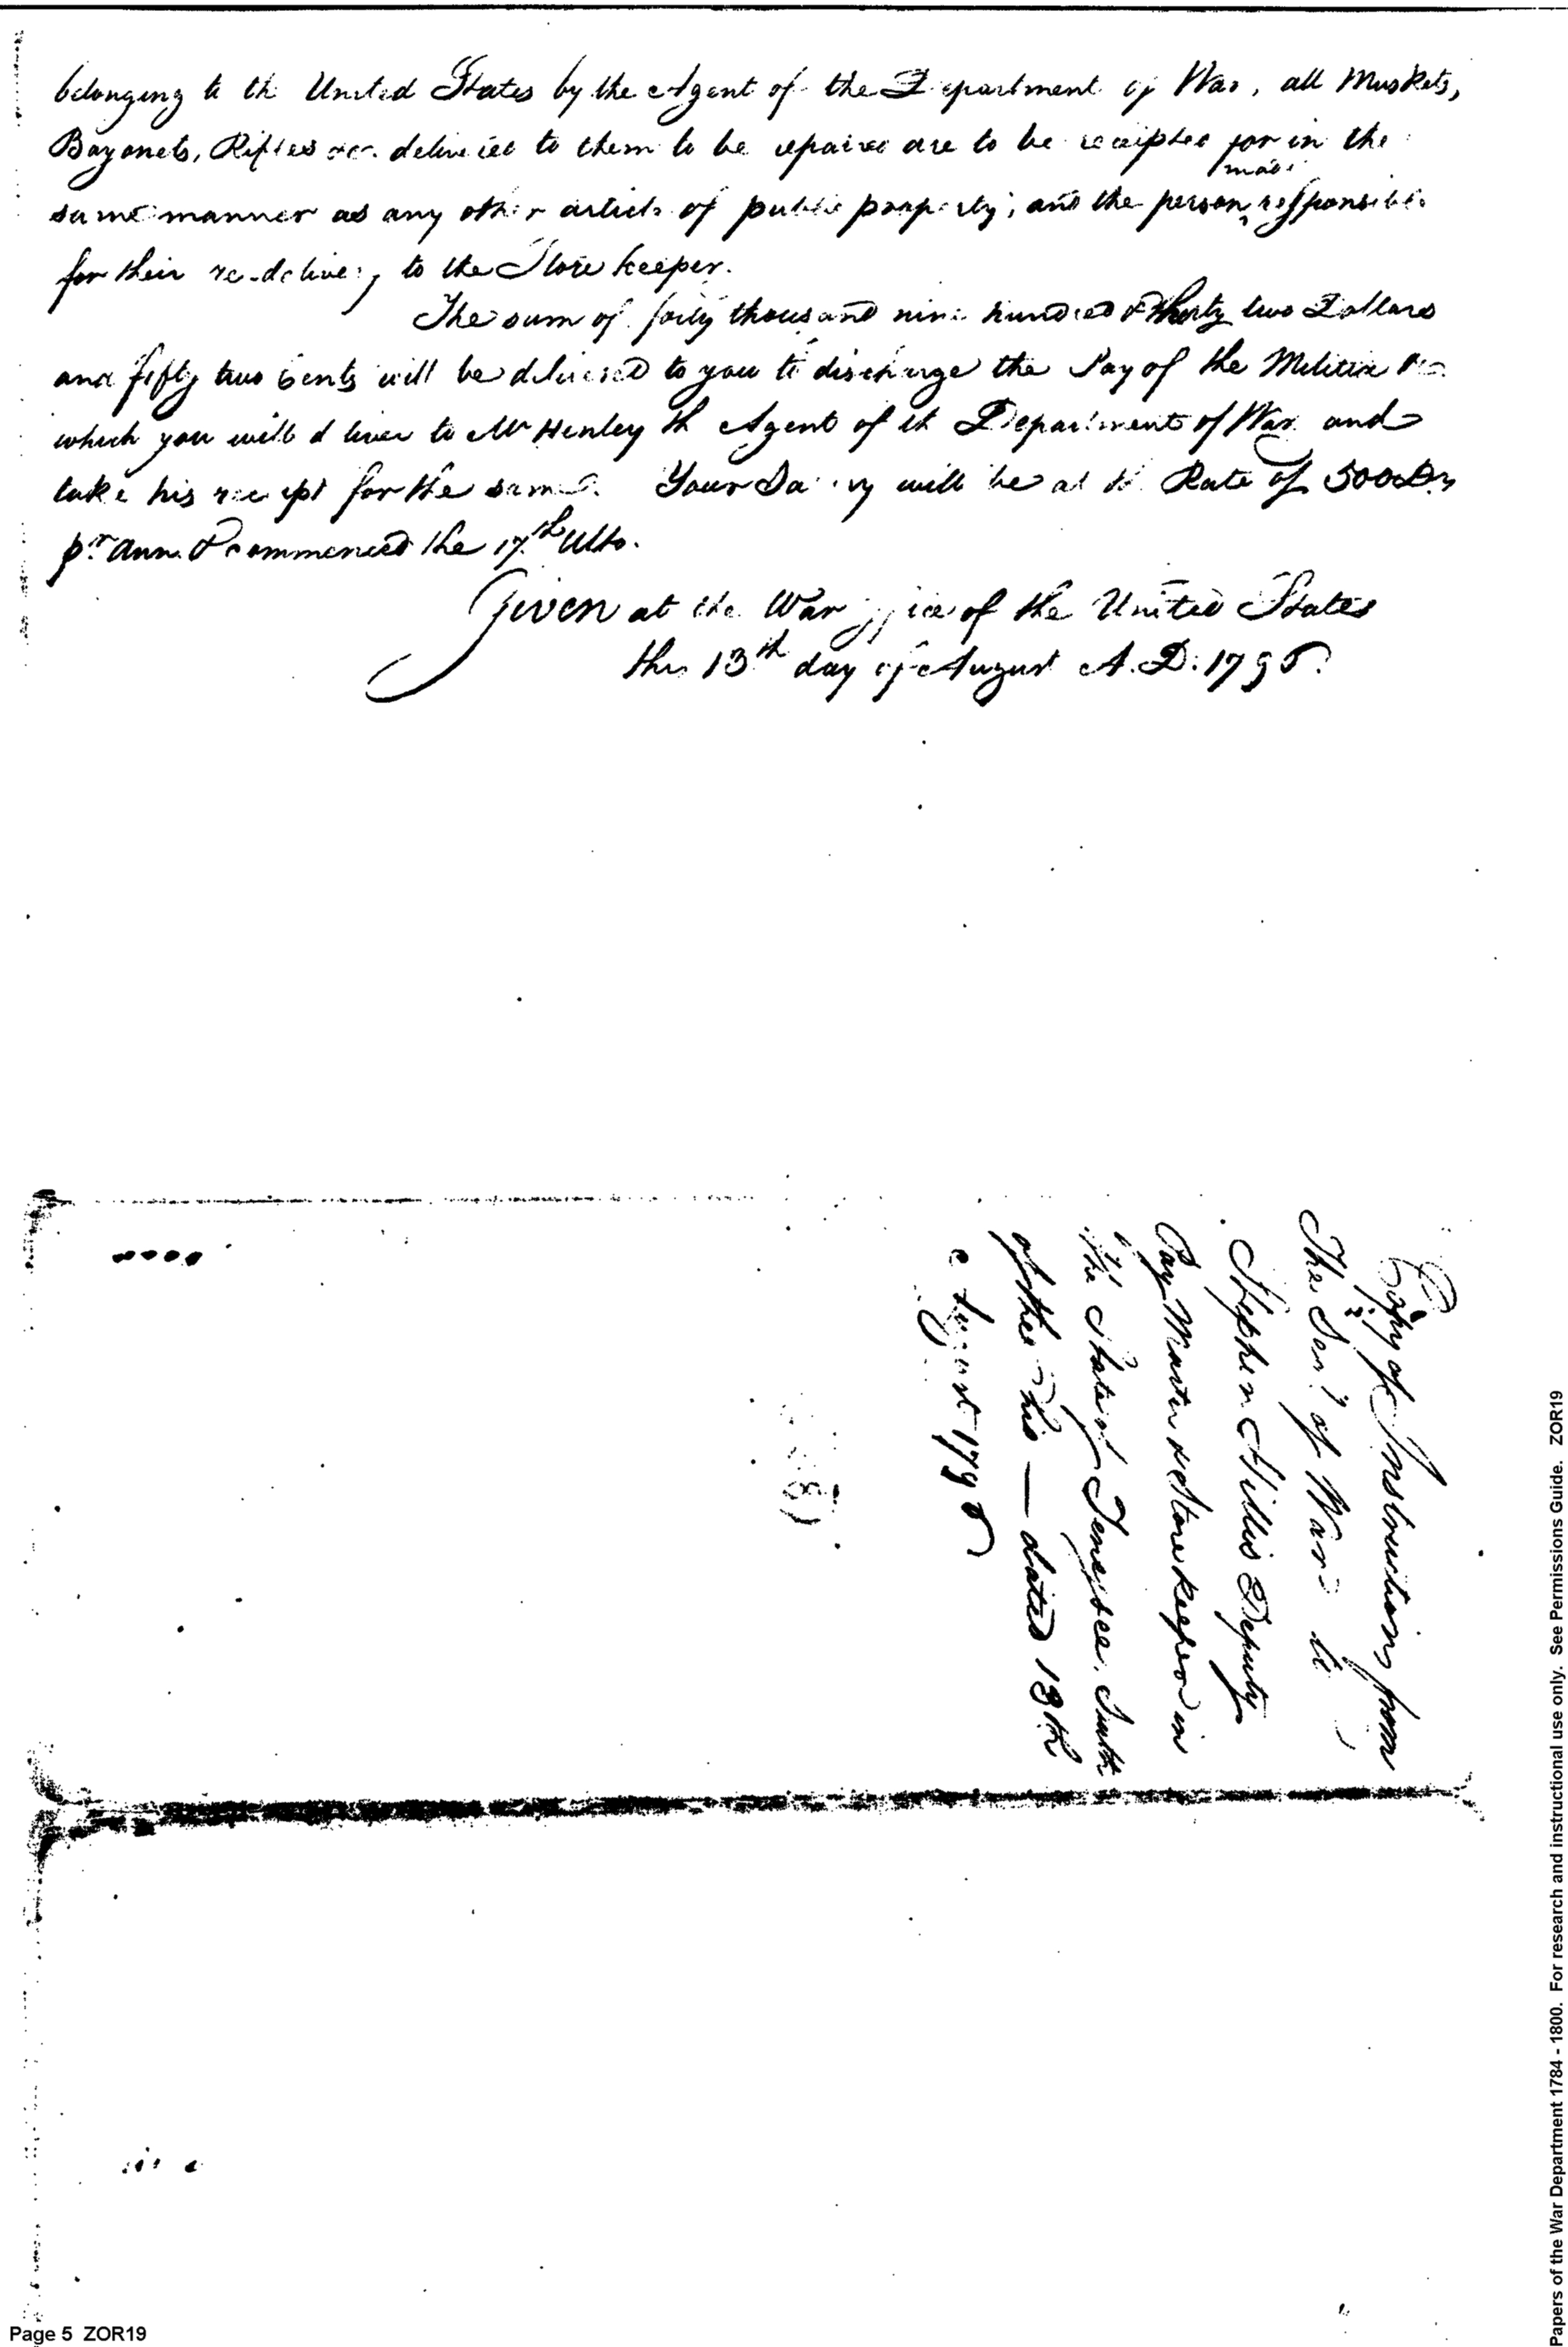 belonging to the United States by the Agent of the Department of War, all Muskets,
Bayonets, Rifles &c. delivered to them to be repaired are to be receipted for in the
made
same manner as any other article of public property; and the person responsible
for their re-delivery to the Store keeper.
The sum of forty thousand nine hundred & thirty two Dollars
and fifty two Cents will be delivered to you to discharge the Pay of the Militia &c
which you will deliver to Mr Henley the Agent of the Department of War and
take his receipt for the same. Your Salary will be at the Rate of 500 Drs
pr. Ann. & commenced the 17.th Ulto.
Given at the War office of the United States
this 13th day of August A. D. 1795.
Copy of Instructions from
The Secy of War to
Stephen Hillis Deputy
Pay Master & Store keeper in
the State of Tenessee, South
of the Ohio — dated 13th
August 1795
Page 5 ZOR19
Papers of the War Department 1784 - 1800. For research and instructional use only. See Permissions Guide. ZOR19